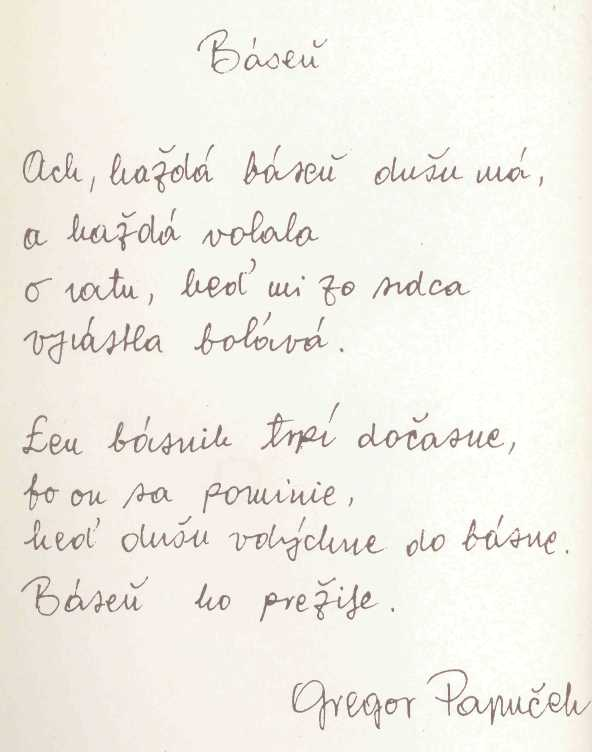 Báseň
Ach, každá báseň dušu má,
a každá volala
o ratu, keď mi zo srdca
vzrástla bolává.
Len básnik trpí dočasne,
bo on sa pominie,
keď dušu vdýchne do básne.
Báseň ho prežije.
Gregor Papuček